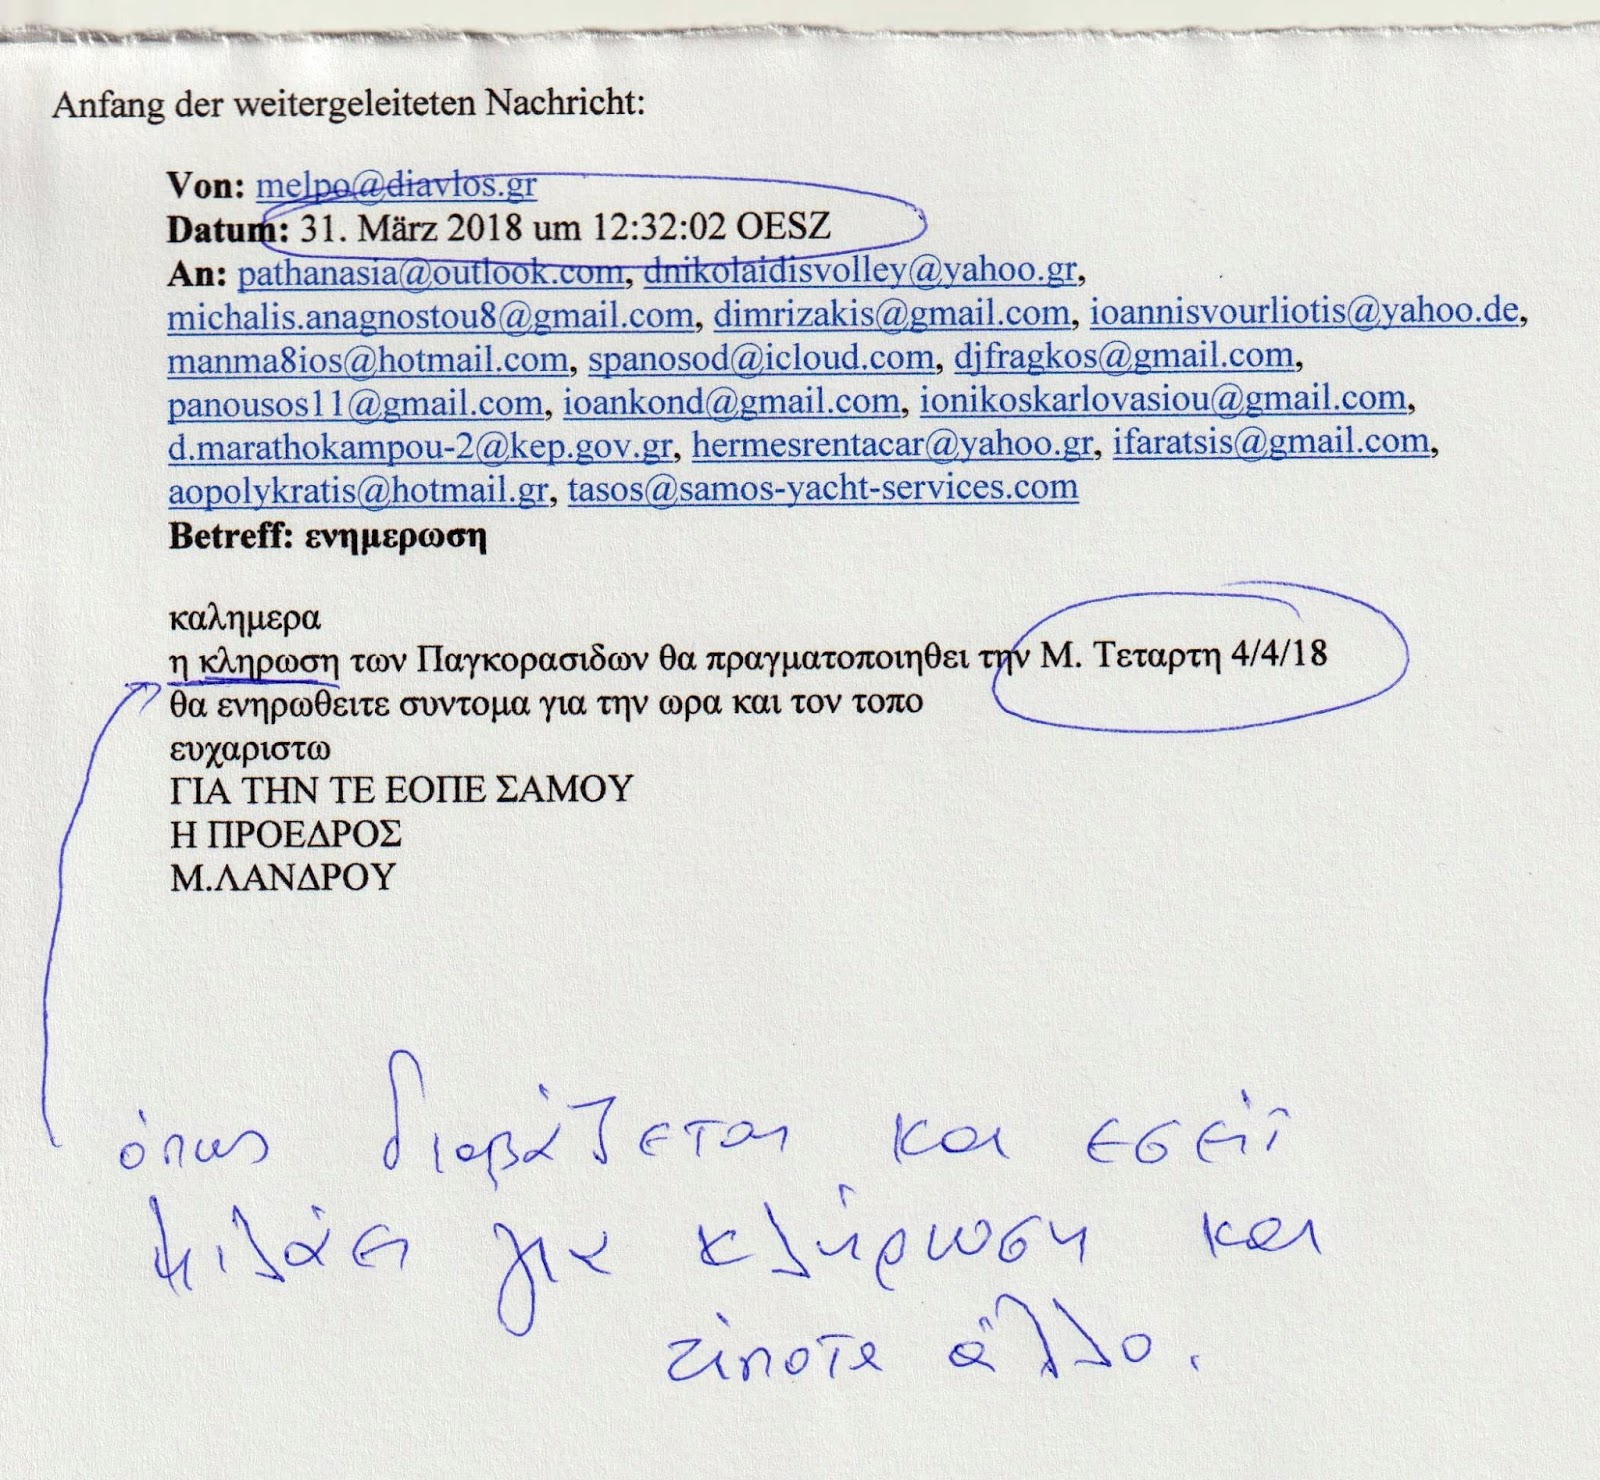 Anfang der weitergeleiteten Nachricht:
Von: melpo@diavlos.gr
Datum: 31. März 2018 um 12:32:02 OESZ
An: pathanasia@outlook.com, dnikolaidisvolley@yahoo.gr,
michalis.anagnostou8@gmail.com, dimrizakis@gmail.com, ioannisvourliotis@yahoo.de,
manma8ios@hotmail.com, spanosod@icloud.com, djfragkos@gmail.com,
panousos11@gmail.com, ioankond@gmail.com, ionikoskarlovasiou@gmail.com,
d.marathokampou-2@kep.gov.gr, hermesrentacar@yahoo.gr, ifaratsis@gmail.com,
aopolykratis@hotmail.gr, tasos@samos-yacht-services.com
Betreff: ενημερωση
καλημερα
η κληρωση των Παγκορασιδων θα πραγματοποιηθει την Μ. Τεταρτη 4/4/18
θα ενηρωθειτε συντομα για την ωρα και τον τοπο
ευχαριστω
ΓΙΑ ΤΗΝ ΤΕ ΕΟΠΕ ΣΑΜΟΥ
Η ΠΡΟΕΔΡΟΣ
Μ.ΛΑΝΔΡΟΥ
όπως διαβάζεται και εσείς
μιλάει για κλήρωση και
τίποτα άλλο.